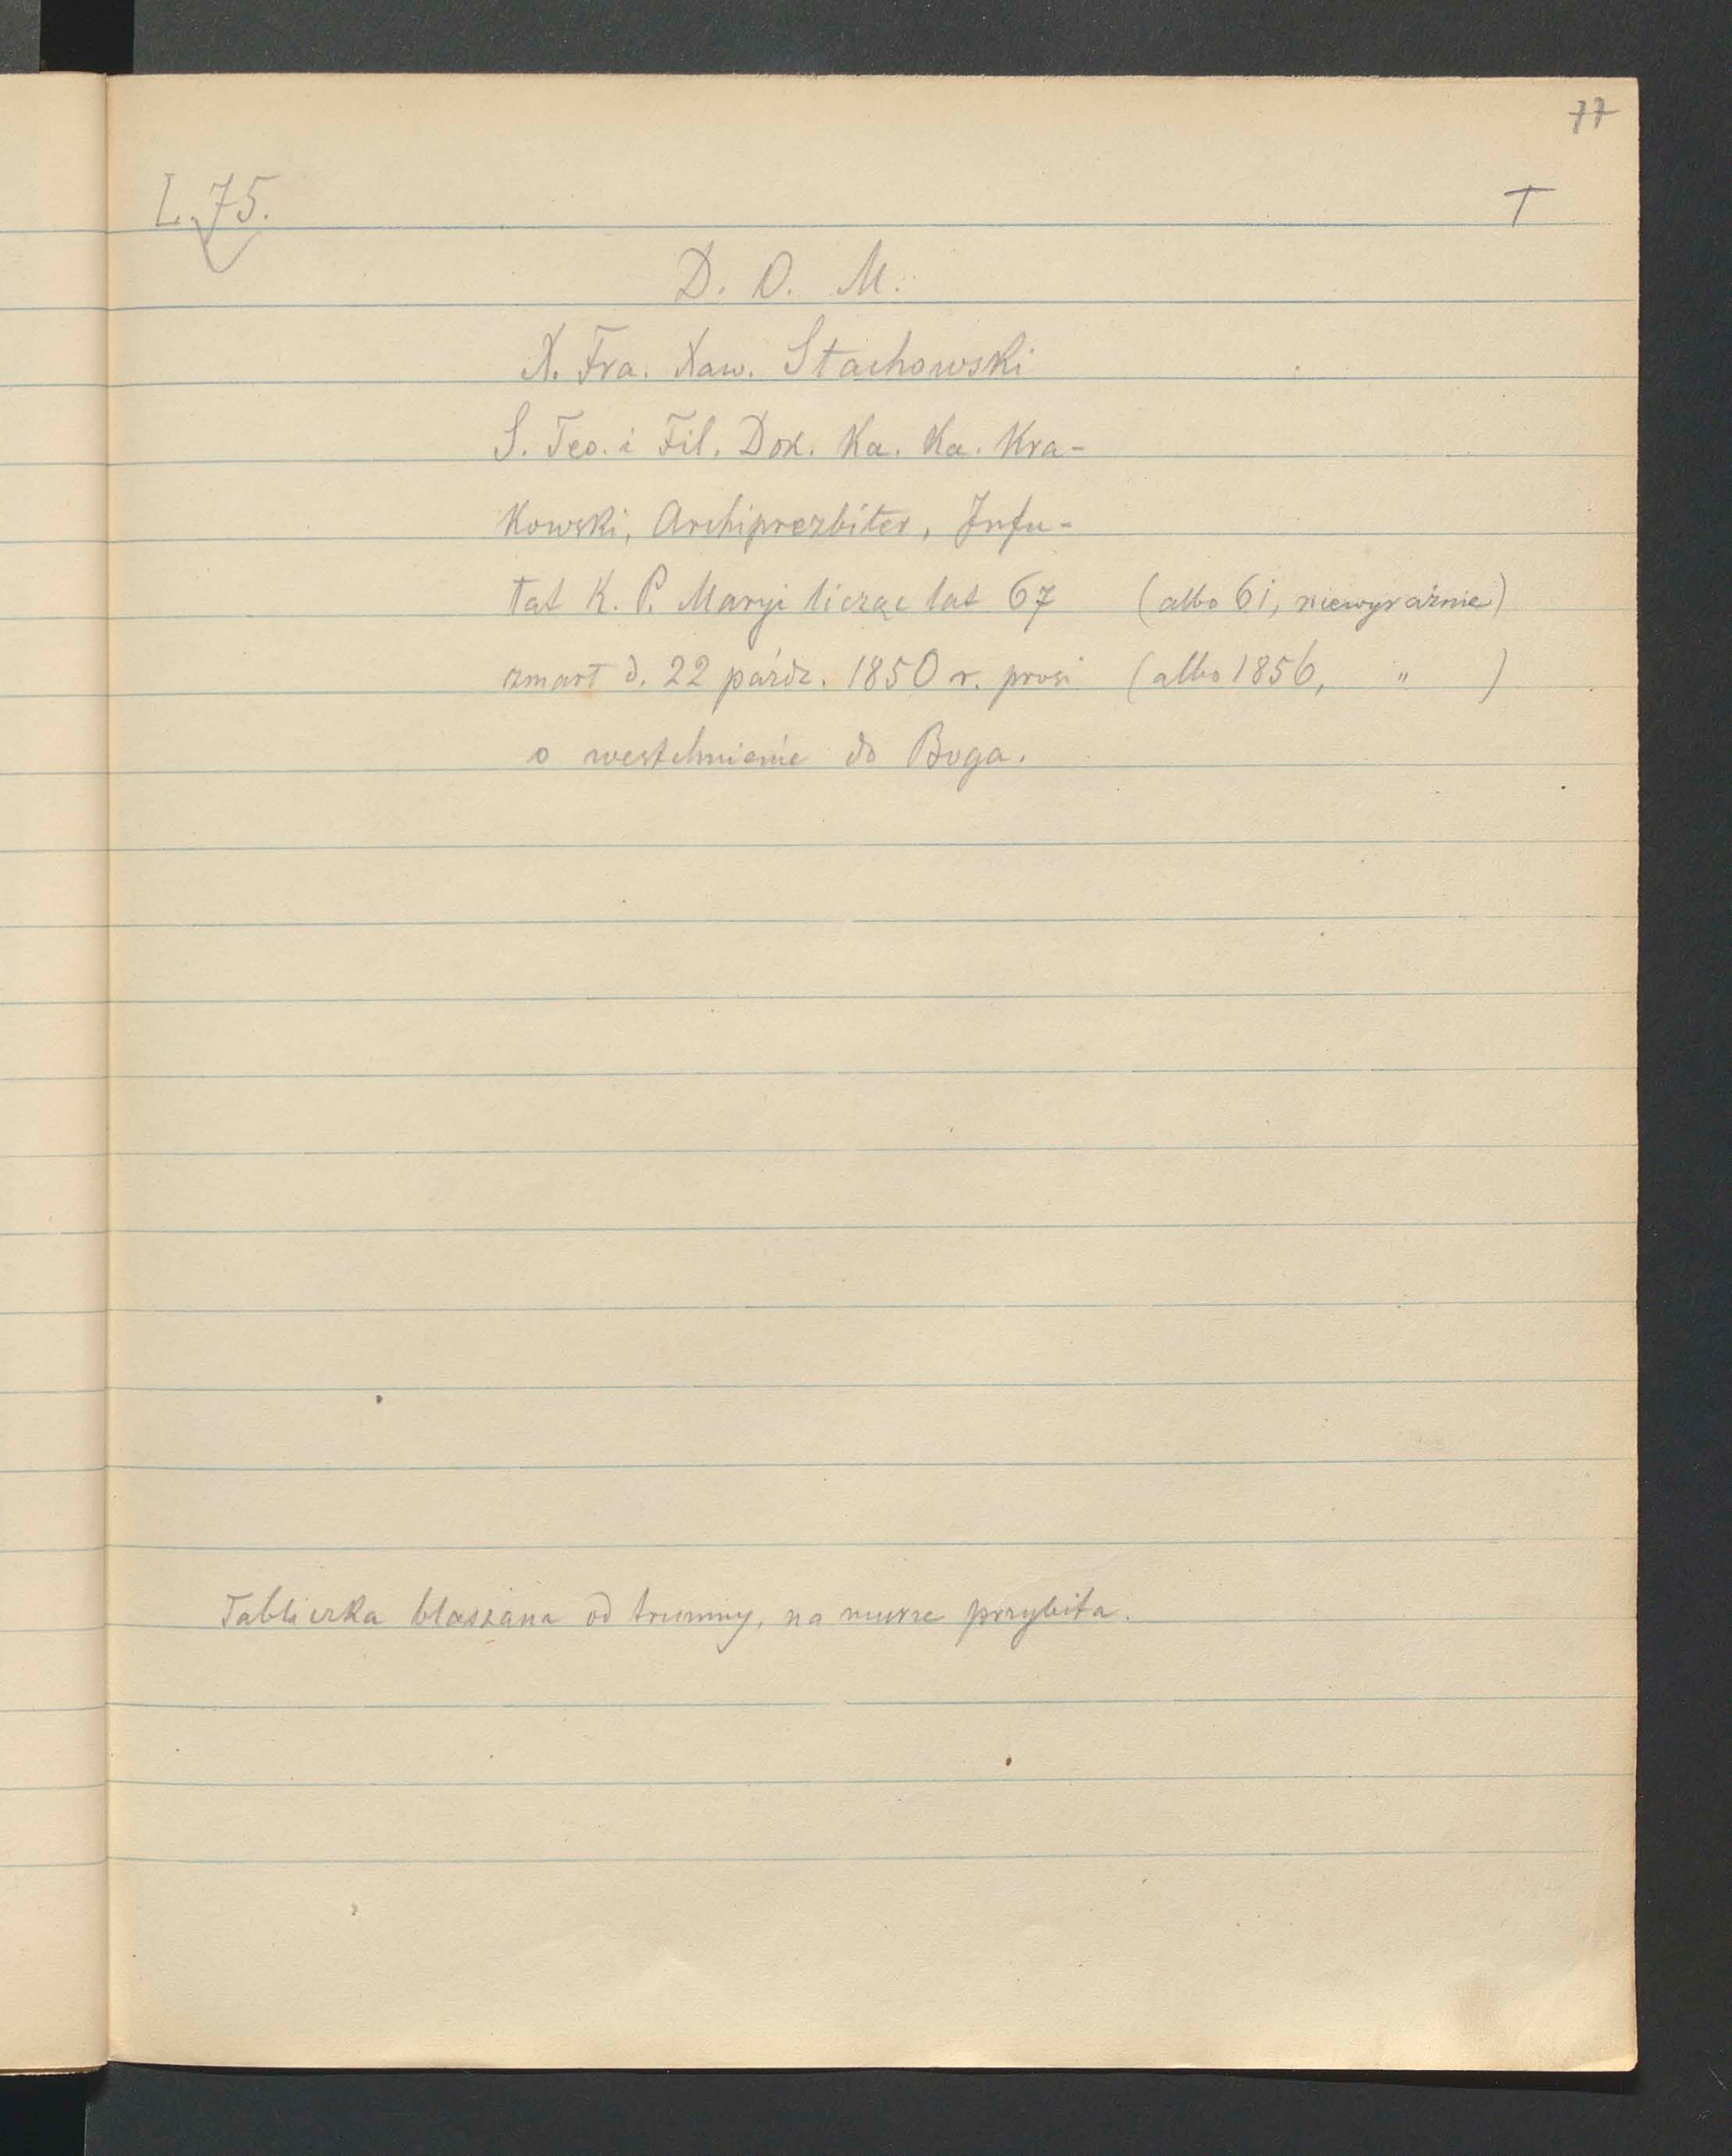 77
L. 75.
T
D. O. M.
X. Fra. Xaw. Stachowski
S. Teo. i Fil. Dok. Ka. Ka. Kra-
kowski, Archiprezbiter, Infu-
łat K. P. Maryi licząc lat 67 (albo 61, niewyraźnie)
zmarł d. 22 paźdz. 1850 r. prosi (albo 1856, " )
o westchnienie do Boga.
Tabliczka blaszana od trumny, na murze przybita.